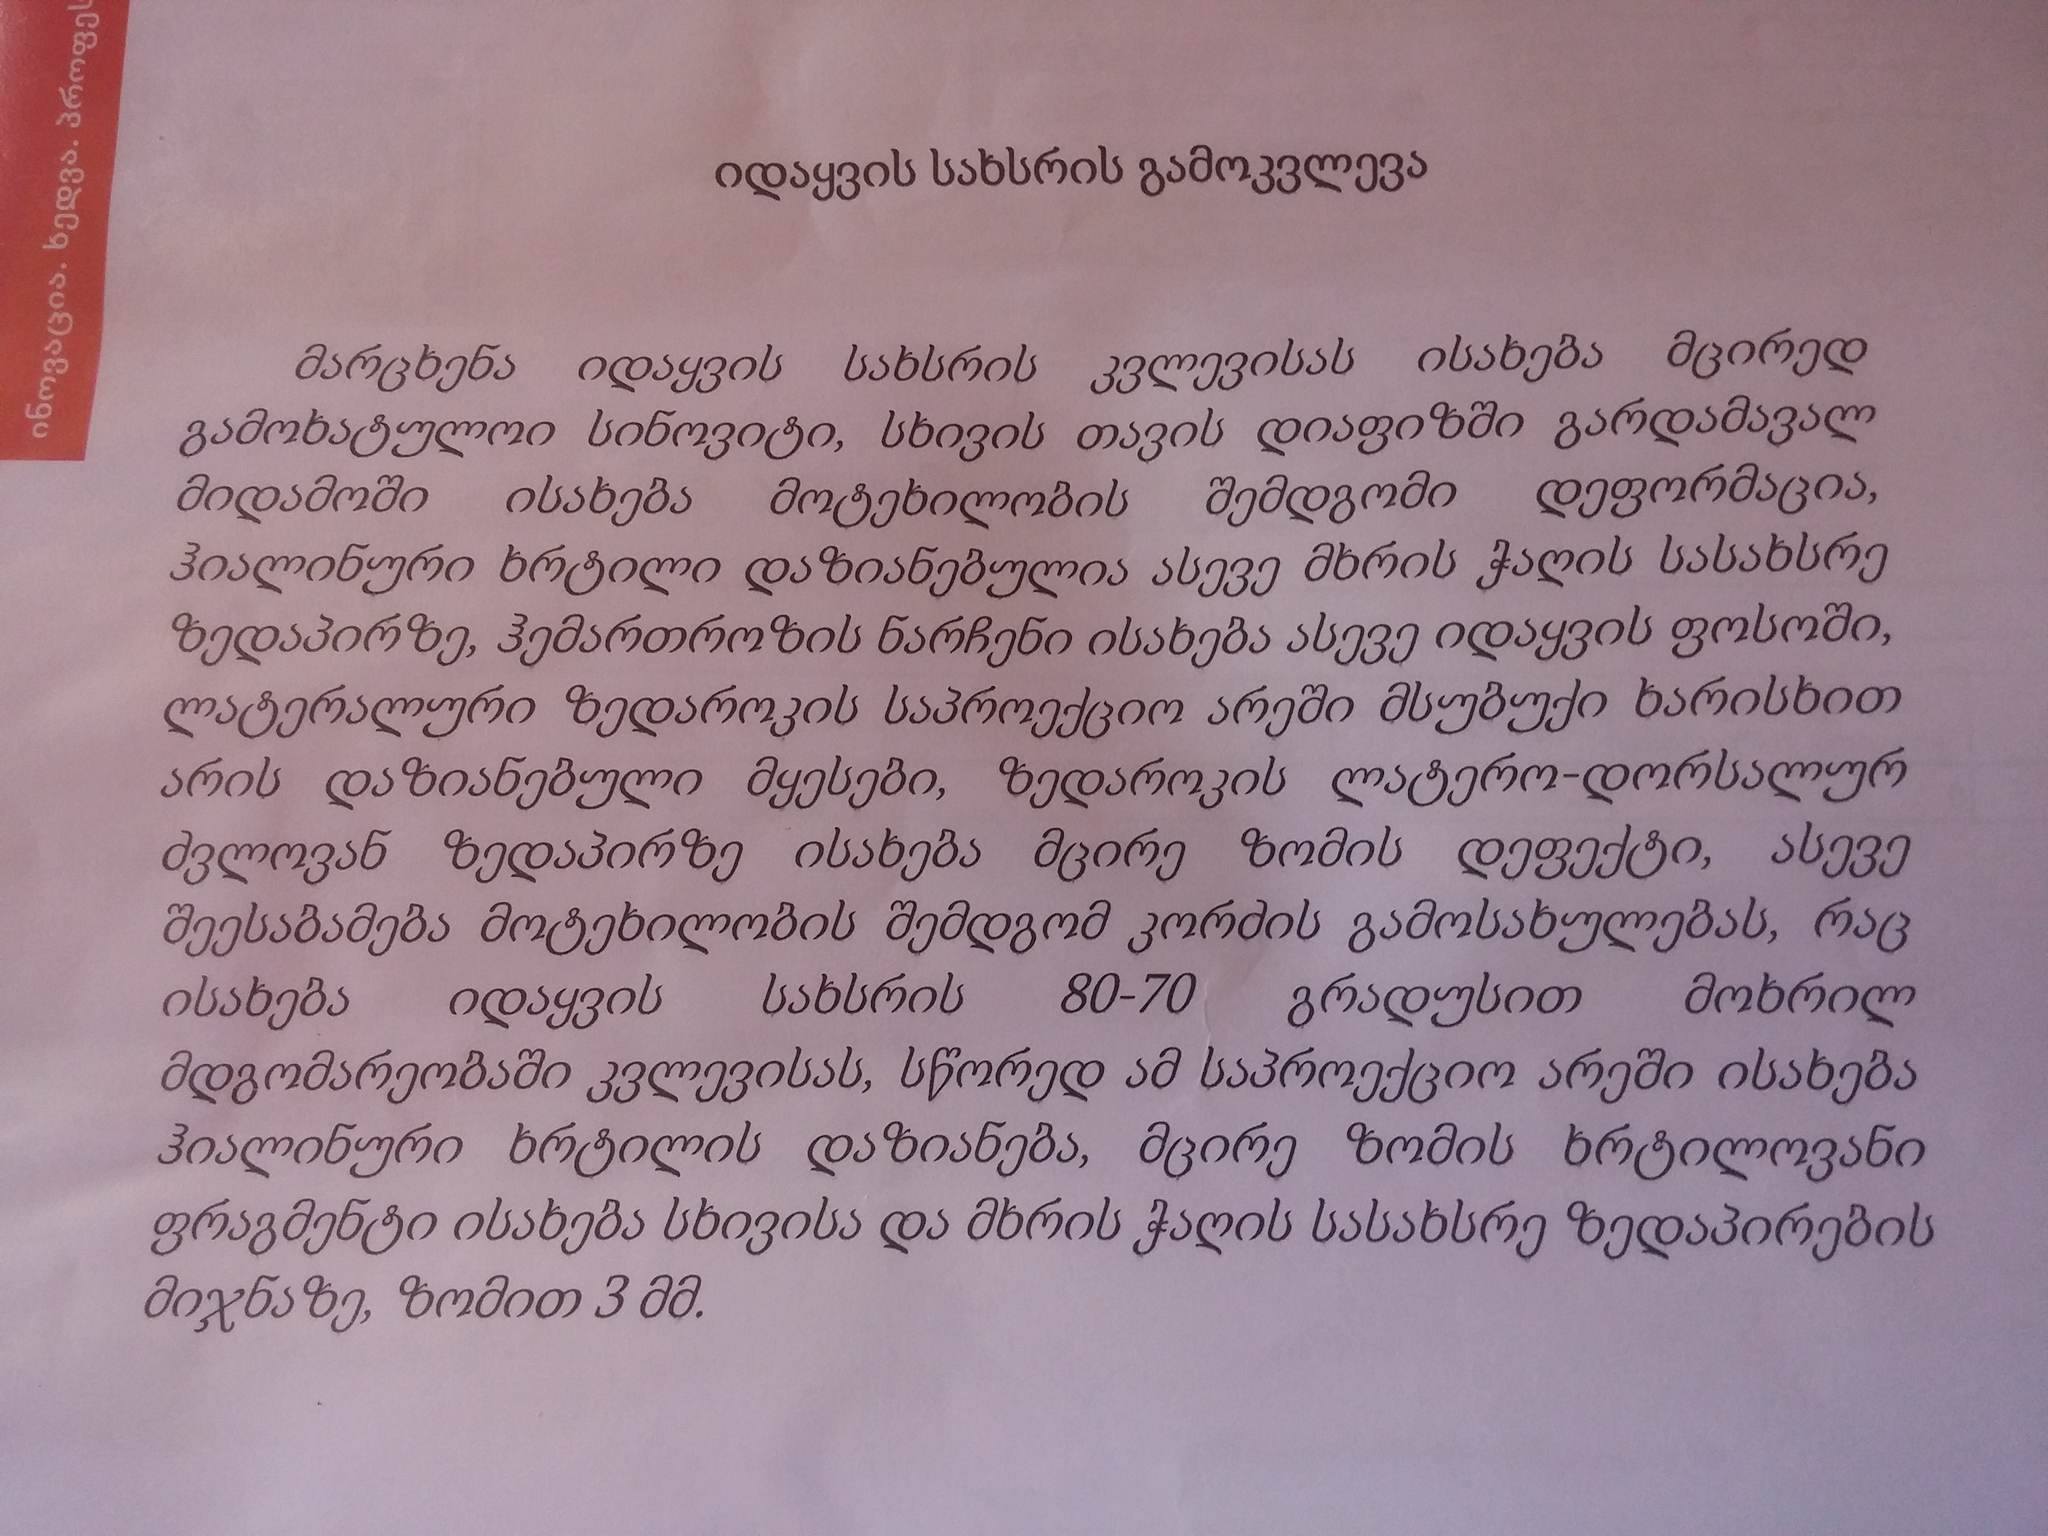 ინოვაცია. ხედვა.
იდაყვის სახსრის გამოკვლევა
მარცხენა იდაყვის სახსრის კვლევისას ისახება მცირედ
გამოხატულოი სინოვიტი, სხივის თავის დიაფიზში გარდამავალ
მიდამოში ისახება მოტეხილობის შემდგომი დეფორმაცია,
ჰიალინური ხრტილი დაზიანებულია ასევე მხრის ჭაღის სასახსრე
ზედაპირზე, ჰემართროზის ნარჩენი ისახება ასევე იდაყვის ფოსოში,
ლატერალური ზედაროკის საპროექციო არეში მსუბუქი ხარისხით
არის დაზიანებული მყესები, ზედაროკის ლატერო-დორსალურ
ძვლოვან ზედაპირზე ისახება მცირე ზომის დეფექტი, ასევე
შეესაბამება მოტეხილობის შემდგომ კორძის გამოსახულებას, რაც
ისახება იდაყვის სახსრის 80-70 გრადუსით მოხრილ
მდგომარეობაში კვლევისას, სწორედ ამ საპროექციო არეში ისახება
ჰიალინური ხრტილის დაზიანება, მცირე ზომის ხრტილოვანი
ფრაგმენტი ისახება სხივისა და მხრის ჭაღის სასახსრე ზედაპირების
მიჯნაზე, ზომით 3 მმ.